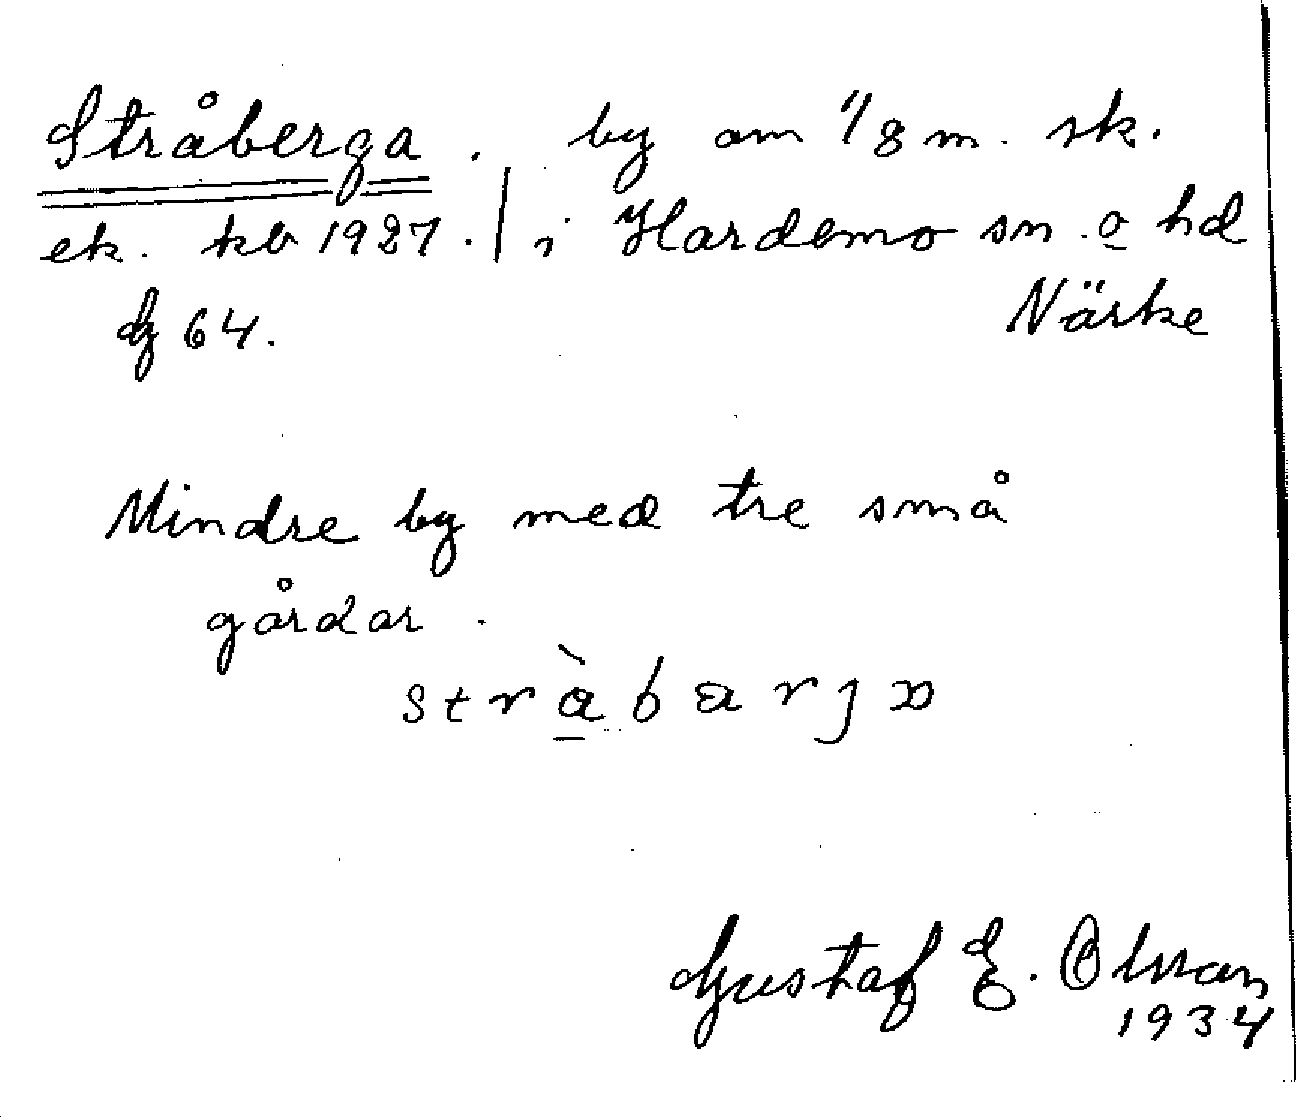 Stråberga. by om 1/8 m. sk.
ek. kb 1927. | i Hardemo sn. o hd
dz 64. Närke
Mindre by med tre små
gårdar.
stràbarjɷ
Gustaf E. Olsson
1934